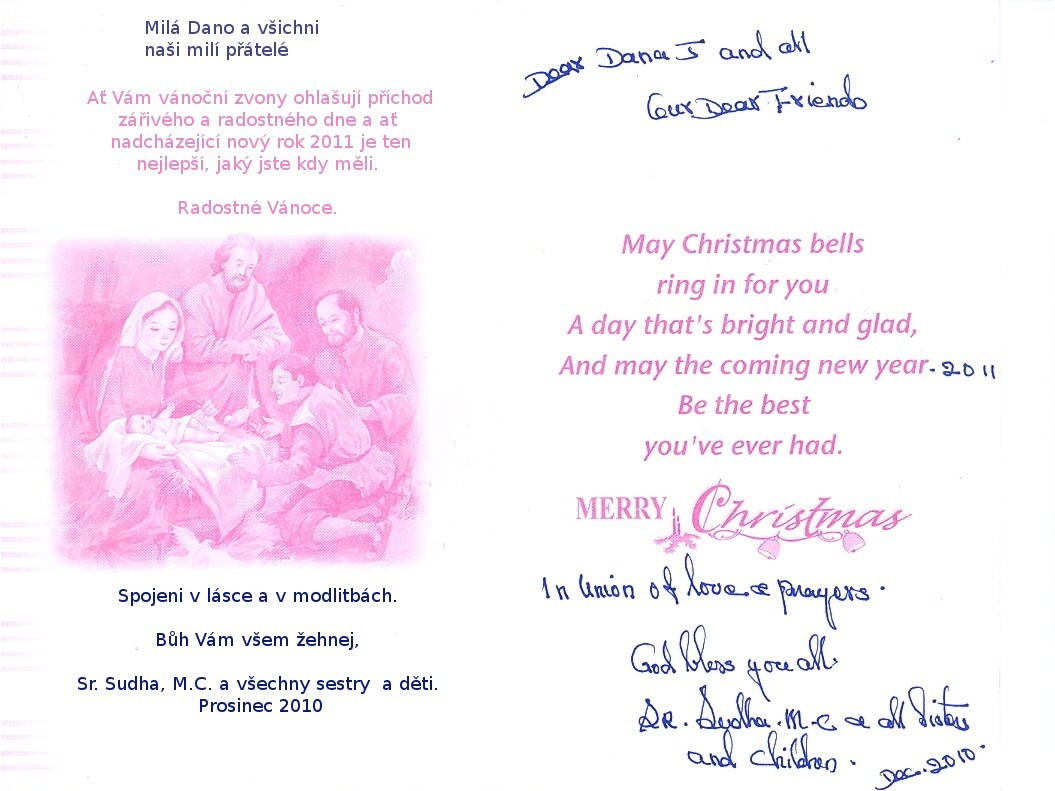 Milá Dano a všichni
naši milí přátelé
Ať Vám vánoční zvony ohlašují příchod
zářivého a radostného dne a ať
nadcházející nový rok 2011 je ten
nejlepší, jaký jste kdy měli.
Radostné Vánoce.
Spojeni v lásce a v modlitbách.
Bůh Vám všem žehnej,
Sr. Sudha, M.C. a všechny sestry a děti.
Prosinec 2010
Dear Dana J and all
Our Dear Friends
May Christmas bells
ring in for you
A day that's bright and glad,
And may the coming new year - 2011
Be the best
you've ever had.
MERRY Christmas
In Union of love & prayers.
God bless you all.
Sr. Sudha. M.C. & all Sisters
and Children.
Dec. 2010.